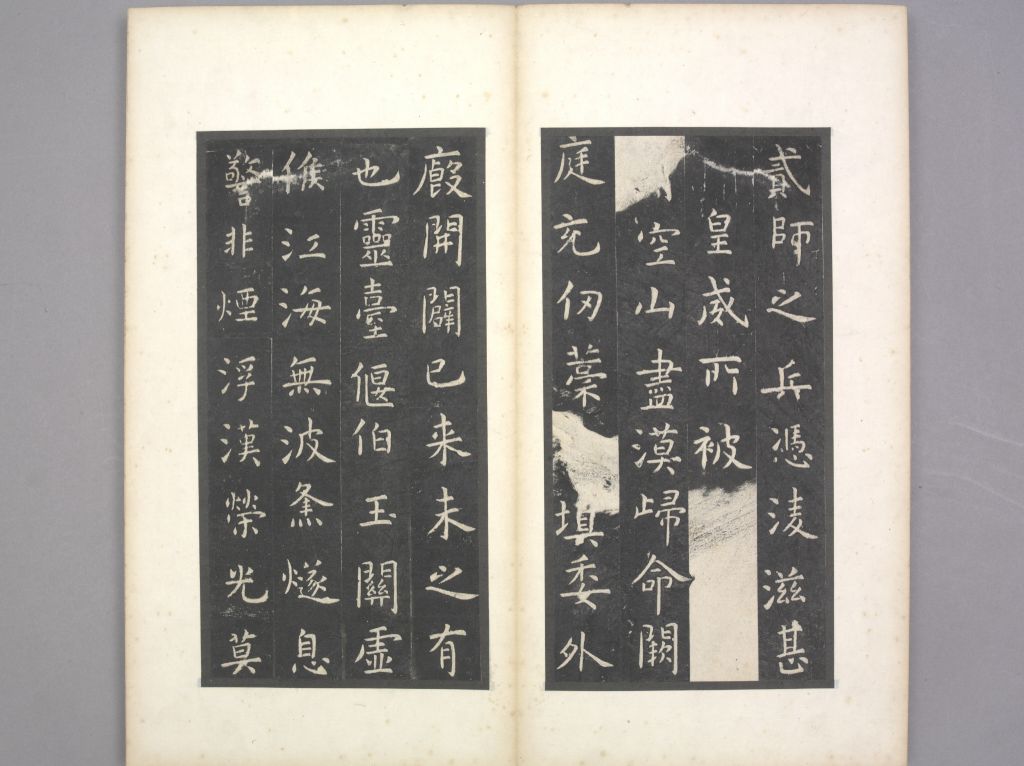 貳師之兵憑淩滋甚
皇威所被
空山盡漠歸命闕
庭充仞藁填委外
廏開闢已来未之有
也靈臺偃伯玉關虛
候江海無波㷭燧息
警非煙浮漢榮光莫